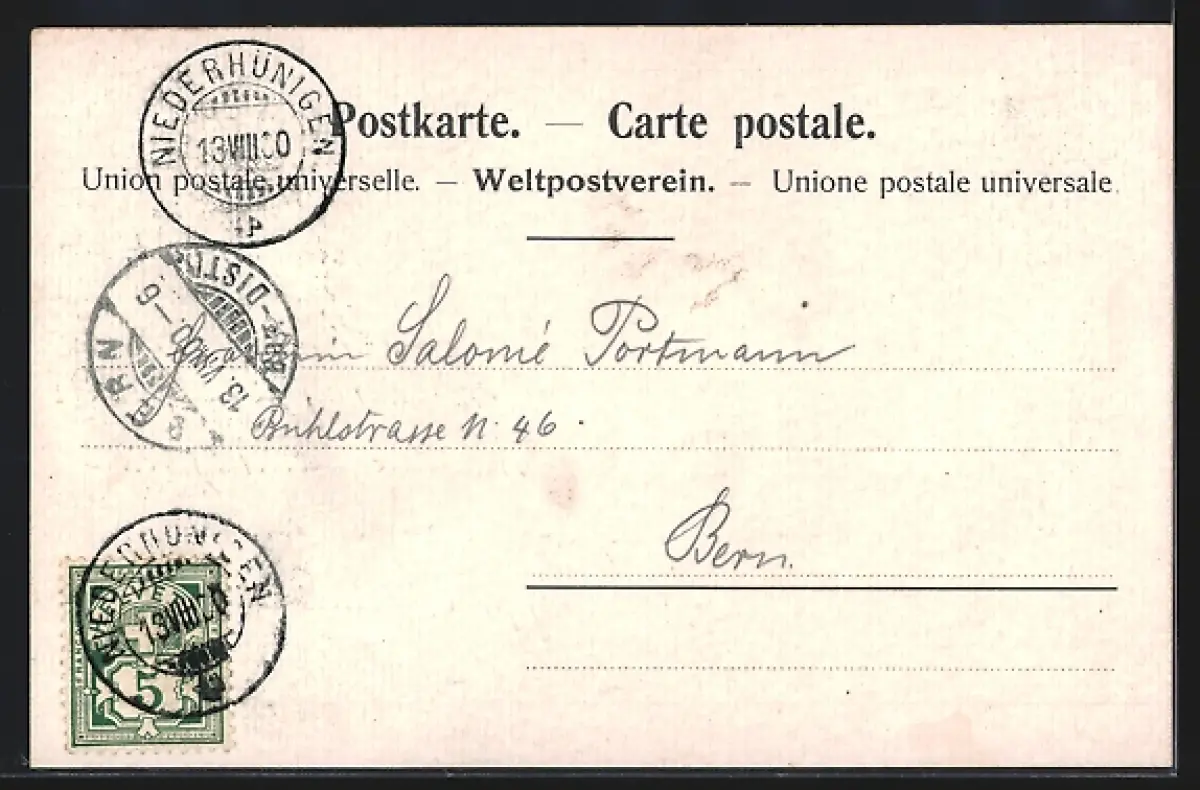 NIEDERHÜNIGEN
13.VIII.00
Postkarte. — Carte postale.
Union postale universelle. — Weltpostverein. — Unione postale universale.
BERN
13.VIII.00.–6
Salomé Portmann
Bühlstrasse N. 46.
Bern.
NIEDERHÜNIGEN
13.VIII.00
FRANCO
5